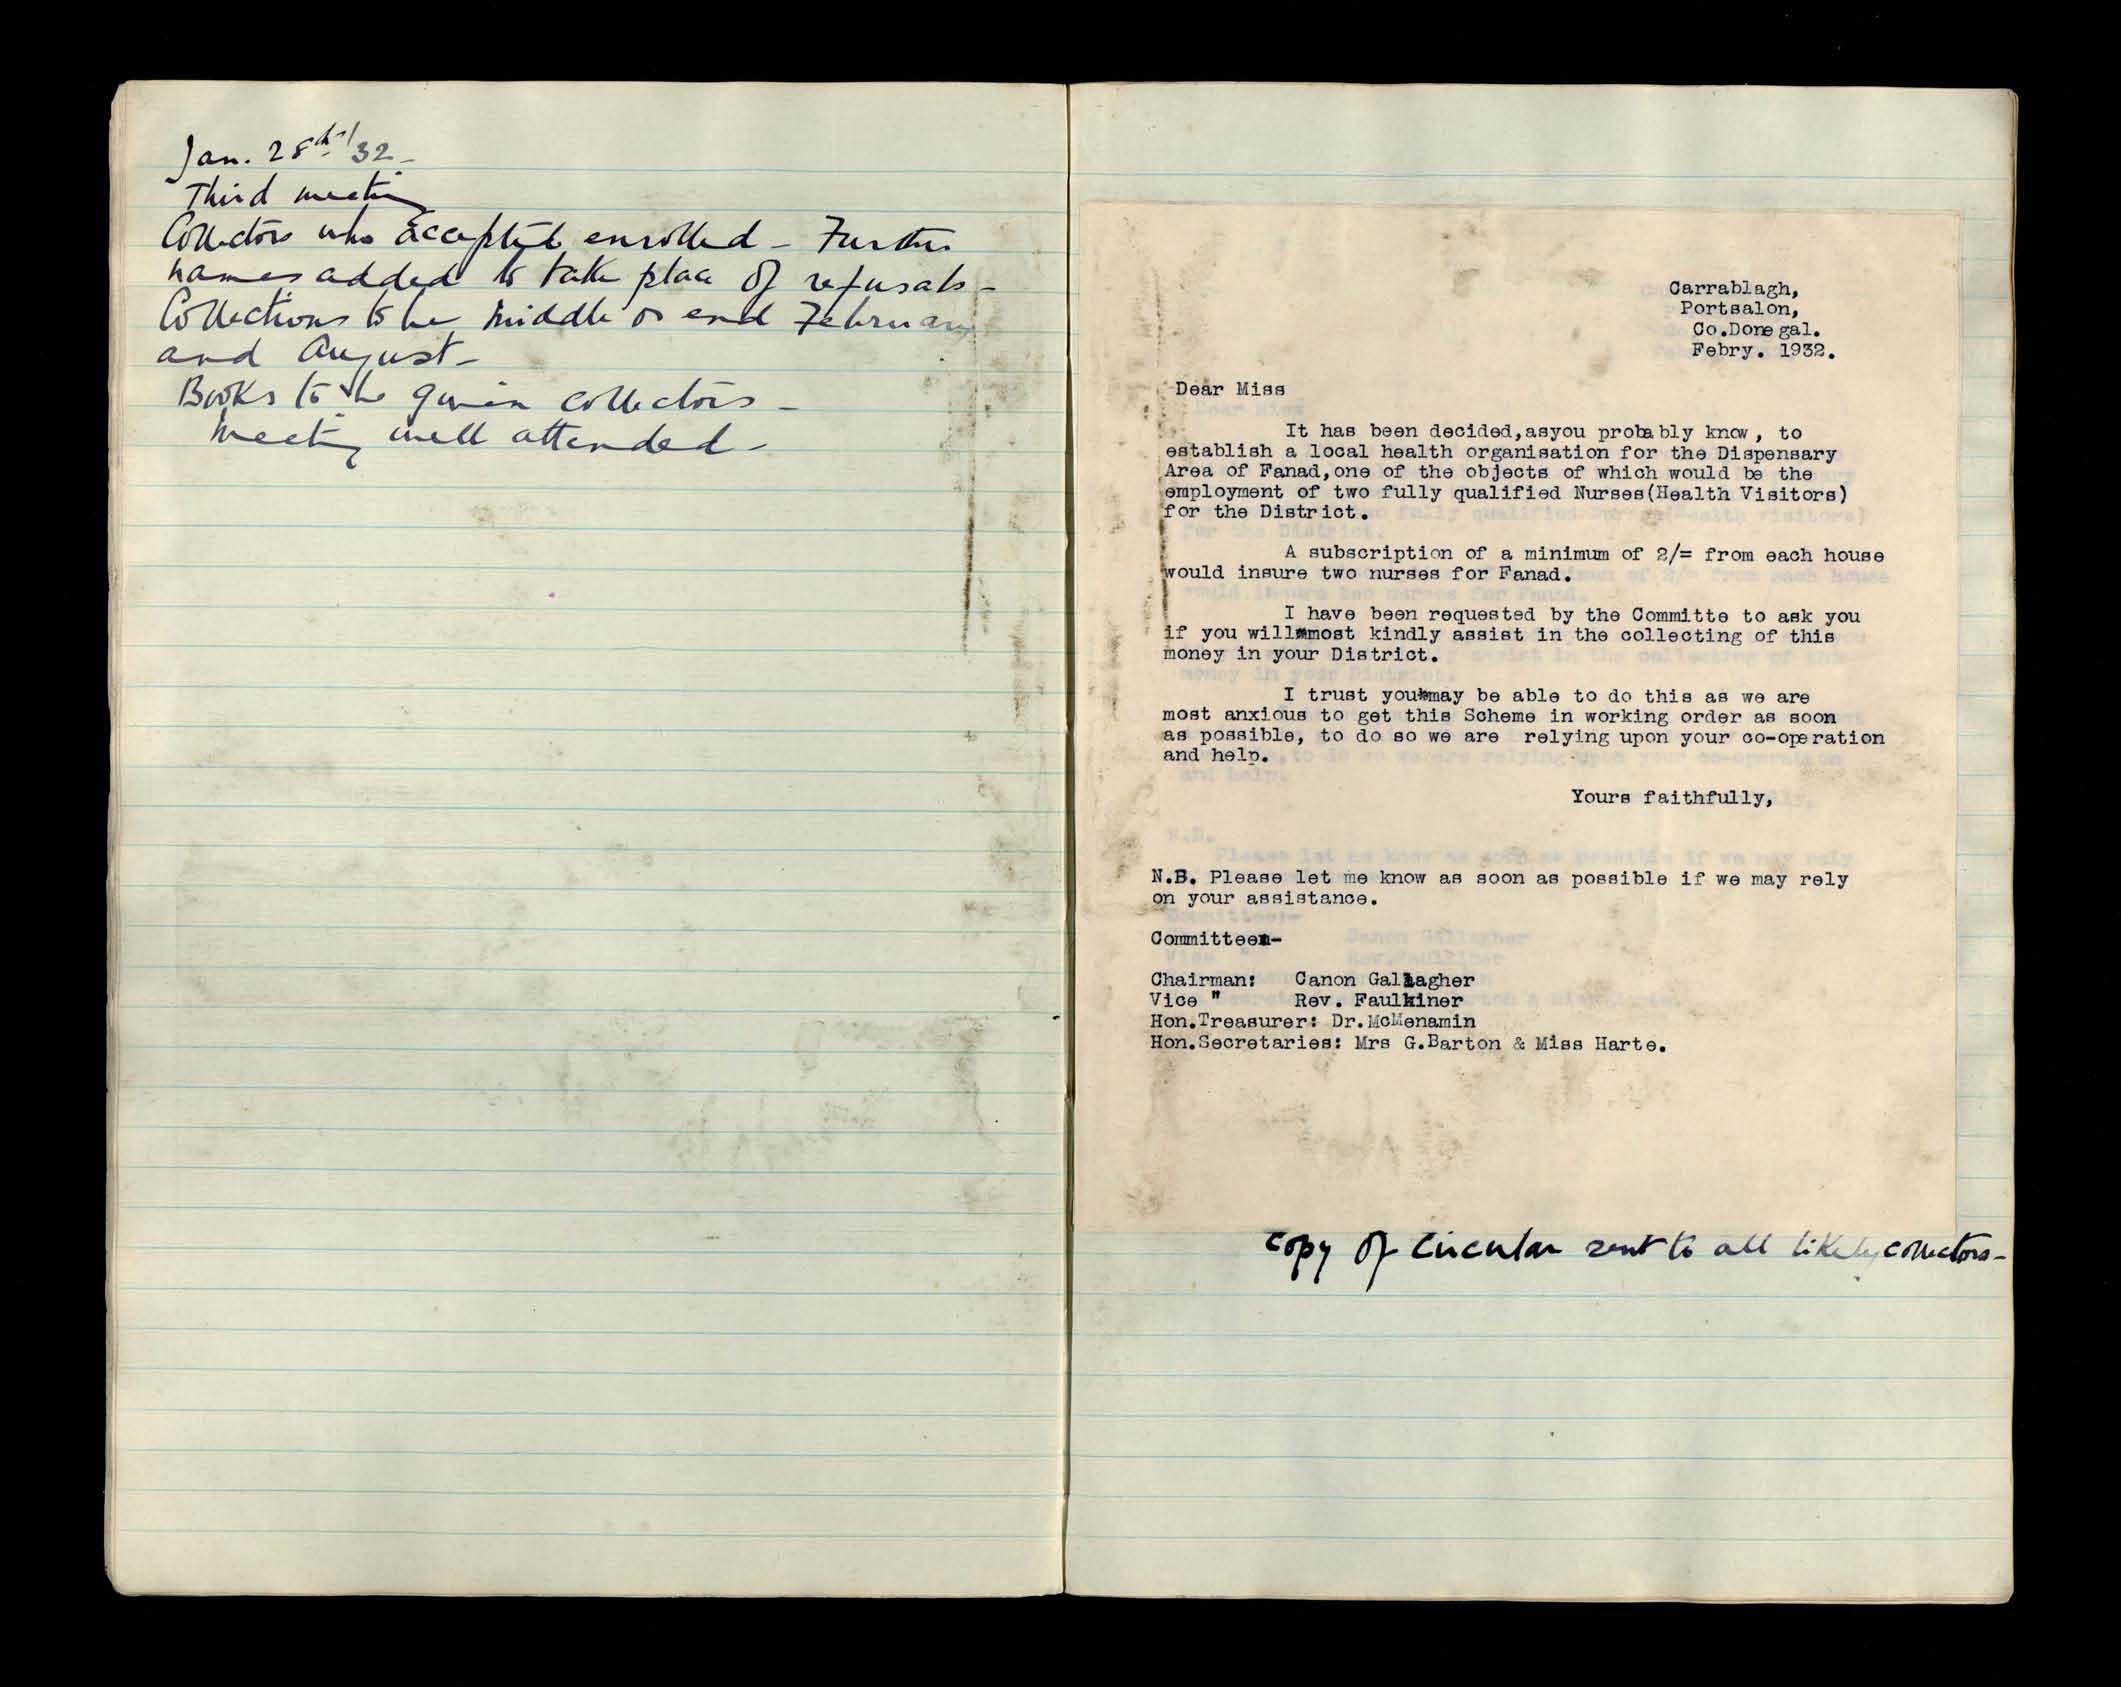 Jan. 28th/32-
Third meeting
Collectors who accepted enrolled - Further
names added to take place of refusals -
Collections to be middle or end February
and August -
Books to be given collectors -
Meeting well attended -
Carrablagh,
Portsalon,
Co.Donegal.
Febry. 1932.
Dear Miss
It has been decided,asyou probably know, to
establish a local health organisation for the Dispensary
Area of Fanad,one of the objects of which would be the
employment of two fully qualified Nurses(Health Visitors)
for the District.
A subscription of a minimum of 2/= from each house
would insure two nurses for Fanad.
I have been requested by the Committe to ask you
if you will most kindly assist in the collecting of this
money in your District.
I trust you may be able to do this as we are
most anxious to get this Scheme in working order as soon
as possible, to do so we are relying upon your co-operation
and help.
Yours faithfully,
N.B. Please let me know as soon as possible if we may rely
on your assistance.
Committee:-
Chairman: Canon Gallagher
Vice " Rev. Faulkiner
Hon.Treasurer: Dr.McMenamin
Hon.Secretaries: Mrs G.Barton & Miss Harte.
Copy of Circular sent to all likely collectors -